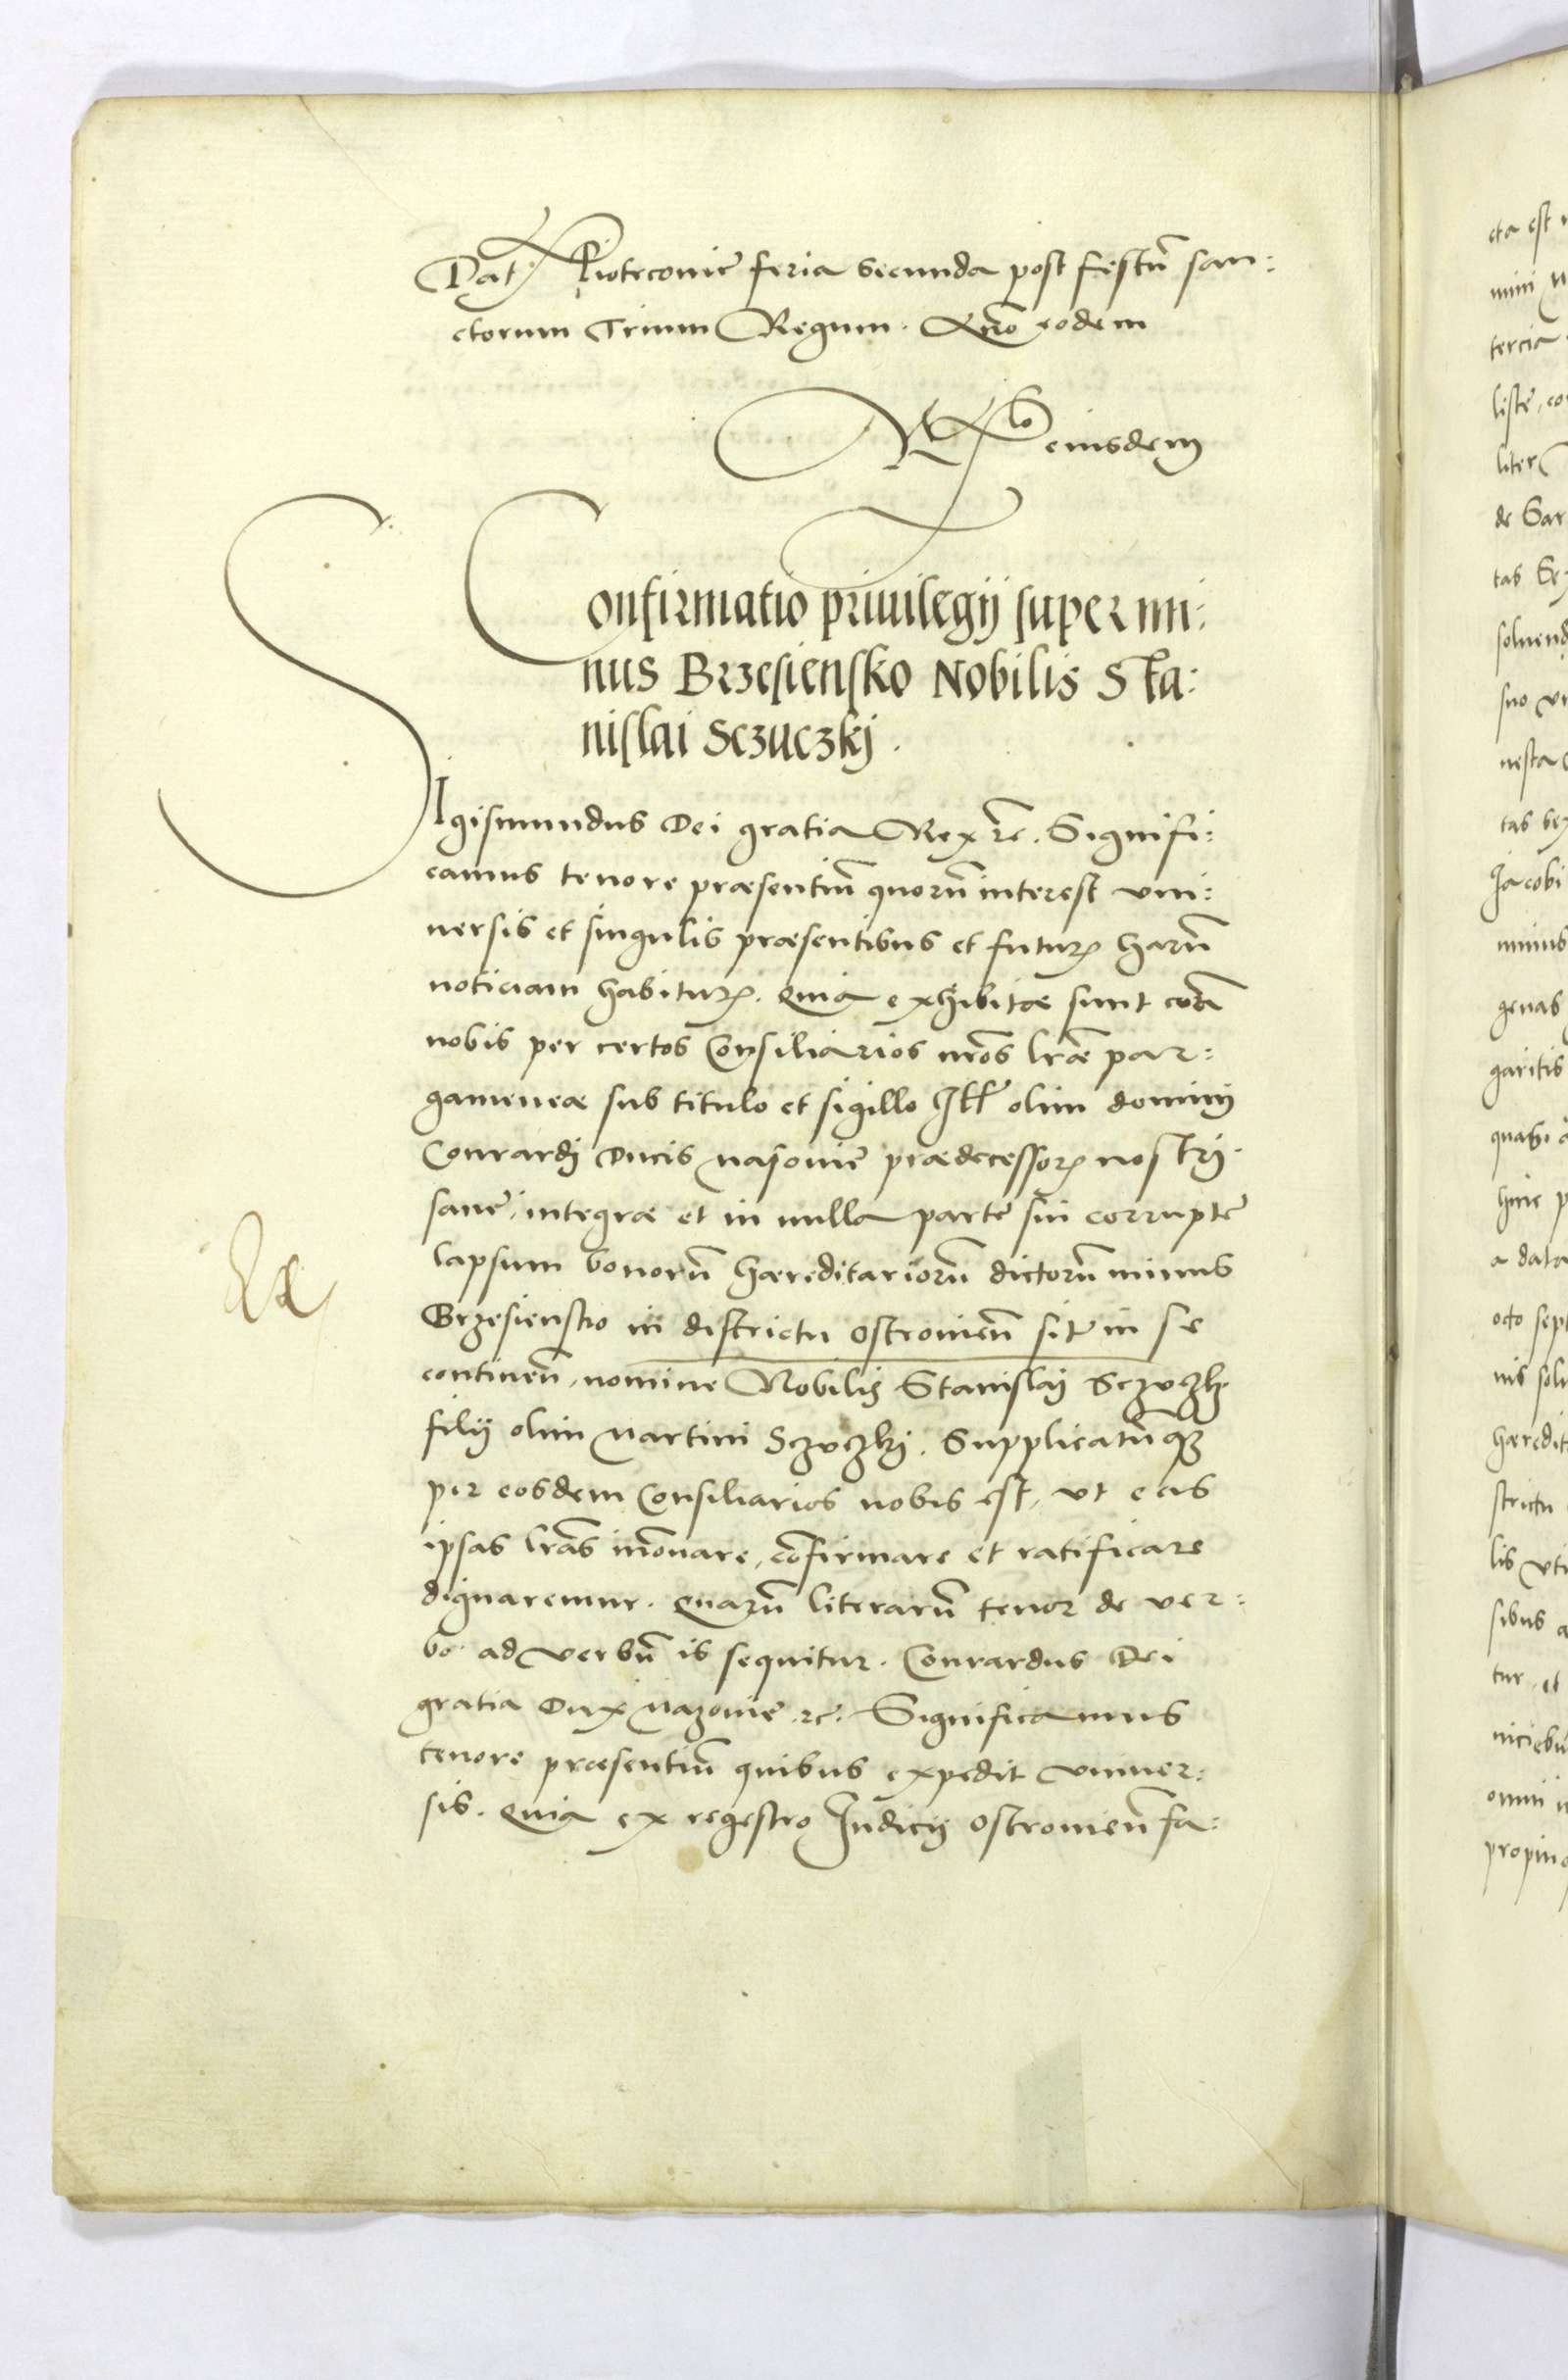 Dat Piotrcouiæ feria secunda post festũ san:
ctorum Trium Regum. Año eodem
Rlõ eiusdem
Confirmatio priuilegij super mi:
nus Brzesiensko Nobilis Sta:
nislai Sczuczkj.
SIgismundus Dei gratia Rex rc. Signifi:
camus tenore præsentiũ quorũ interest vni:
uersis et singulis præsentibus et futurꝭ harũ
noticiam habiturꝭ. Quia exhibitæ sunt corã
nobis per certos Consiliarios nrõs lræ par:
gameneæ sub titulo et sigillo Illˡ olim dominj
Conradj Ducis Masouię prædecessorꝭ nostrj.
sanę, integræ et in nulla parte sui corruptę
lapsum bonorũ hæreditariorũ dictorũ minus
Brzesiensko in districtu Ostrouieñ sitˢ in se
contineñ, nomine Nobilis Stanislaj Sczuczkj
filij olim Martini Sczuczkj. Supplicatũqꝫ
per eosdem Consiliarios nobis est, vt eas
ipsas lrãs iñouare, cõfirmare et ratificare
dignaremur. Quarũ literarũ tenor de ver:
bo ad verbũ is sequitur. Conradus Dei
gratia Dux Mazouię rc. Significamus
tenore præsentiũ quibus expedit vniuer:
sis. Quia ex regestro Judicij Ostrouieñ fa:
cta est
mini
tercia
listę, co
liter
de Gar
tas
soluend
suo
nesta
tas
Jacobi
minus
genas
garitis
quasi
hinc p
a data
octo sept
nis solu
hæredit
strictu
lis vti
sibus a
tur, et
niciebũ
omni
propinq